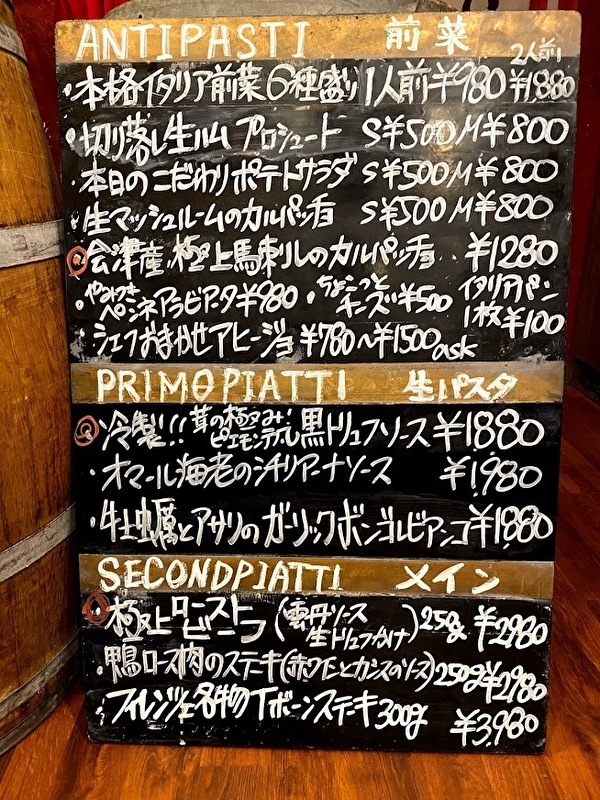 ANTIPASTI 前菜 2人前
・本格イタリア前菜6種盛り 1人前¥980 ¥1,880
・切り落し生ハム プロシュート S¥500 M¥800
・本日のこだわりポテトサラダ S¥500 M¥800
・生マッシュルームのカルパッチョ S¥500 M¥800
会津産 極上馬刺しのカルパッチョ ¥1280
・やみつき ペンネアラビアータ¥980 ・ちょこっとチーズ¥500 イタリアパン 1枚¥100
・シェフおまかせアヒージョ ¥780~¥1500 ask
PRIMO PIATTI 生パスタ
冷製!! 茸の極み! ピエモンテ 黒トリュフソース ¥1880
・オマール海老のシチリアーナソース ¥1,980
・牡蠣とアサリのガーリックボンゴレビアンコ ¥1,880
SECONDPIATTI メイン
極上ローストビーフ (雲丹ソース 生トリュフかけ) 250g ¥2980
・鴨ロース肉のステーキ(赤ワインとカシスのソース) 250g ¥2980
・フィレンツェ名物Tボーンステーキ 300g ¥3,980